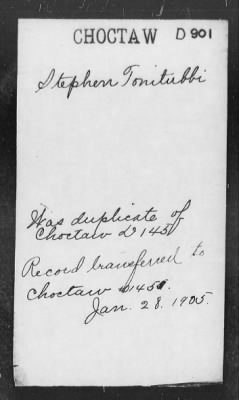 CHOCTAW D 901
Stephen Tonitubbi
Was duplicate of
Choctaw D 145
Record transferred to
Choctaw 145.
Jan. 28. 1905.